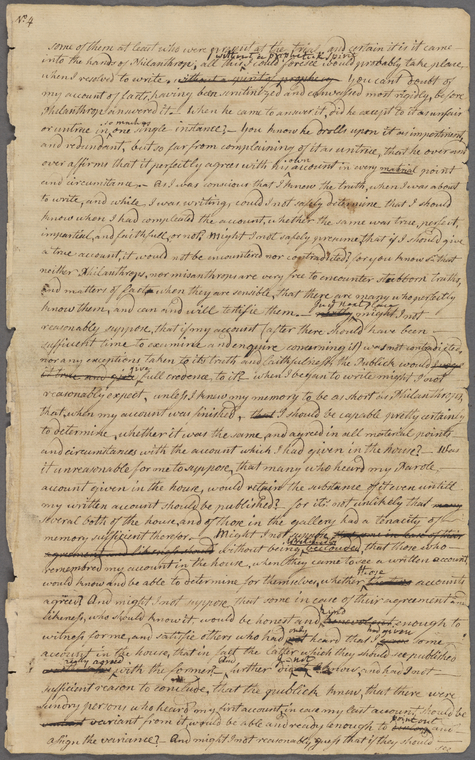 No. 4
some of them at least who were present at the trial, and certain it is it came
without a prophetick spirit
into the hands of Philanthrop, all this I could foresee would probably take place
when I resolved to write, without a spirit of prophecy. You cant doubt of
my account of facts, having been scrutinized and canvassed most rigidly, before
Philanthrop answered it. When he came to answer it, did he except to it as unfair
or untrue in one single instance? You know he drolls upon it as impertinent
and redundant, but so far from complaining of it as untrue, that he over and
over affirms that it perfectly agrees with his account in every material point
and circumstance. As I was conscious that I knew the truth, when I was about
to write, and while I was writing, could I not safely determine, that I should
know when I had compleated the account, whether the same was true, perfect,
impartial, and faithfull, or not? Might I not safely presume, that if I should give
a true account, it would not be incountered nor contradicted; for you know Sr. that
neither Philanthrops, nor misanthrops are very free to encounter stubborn truths,
and matters of fact, when they are sensible, that there are many who perfectly
know them, and can and will testifie them. might I not
reasonably suppose, that if my account (after there should have been
sufficient time to examine and enquire concerning it) was not contradicted,
nor any exceptions taken to its truth and faithfulness, the Publick would
give full credence, to it? when I began to write might I not
reasonably expect, unless I knew my memory to be as short as Philanthrop's,
that, when my account was finished, that I should be capable pretty certainly
to determine, whether it was the same, and agreed in all material points
and circumstances with the account which I had given in the house? Was
it unreasonable for me to suppose, that many who heard my Parole
account given in the house, would retain the substance of it even until
my written account should be published? for its not unlikely that
several both of the house, and of those in the gallery had a tenacity of
memory sufficient therefor. Might I not suppose
without being that those who
remembred my account in the house, when they came to see a written account
would know and be able to determine for themselves, whether those account
agree? And might I not suppose, that some in case of their agreement and
likeness, who should know it would be honest and kind enough to
witness for me, and satisfie others who had not heard that some
account in the house, that in fact the latter which they should see published
really agreed with the former. And further did I not know, and had I not
sufficient reason to conclude, that the publick knew, that there were
sundry persons who heard my first account, in case my last account, should be
variant from it would be able and ready enough to point out and
assign the variance? And might I not reasonably guess that if they should
see